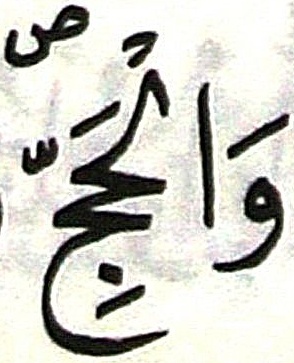 وَالْحَجِّ ص